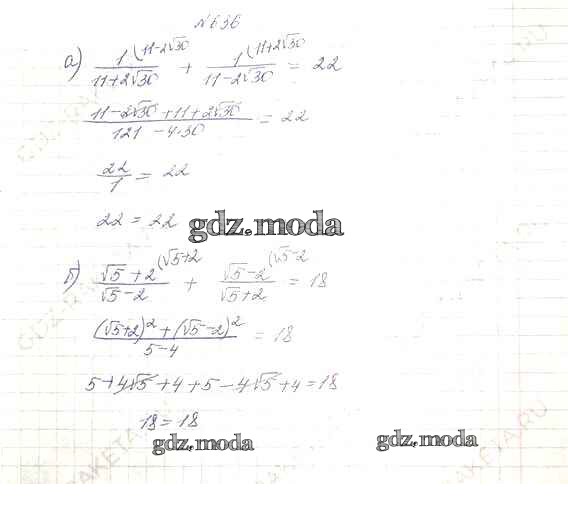 №636
а) 1(11-2√30 / 11+2√30 + 1(11+2√30 / 11-2√30 = 22
11-2√30+11+2√30 / 121-4·30 = 22
22/1 = 22
22 = 22
gdz.moda
б) √5+2(√5+2 / √5-2 + √5-2(√5-2 / √5+2 = 18
(√5+2)²+(√5-2)² / 5-4 = 18
5+4√5+4+5-4√5+4=18
18=18
gdz.moda
gdz.moda